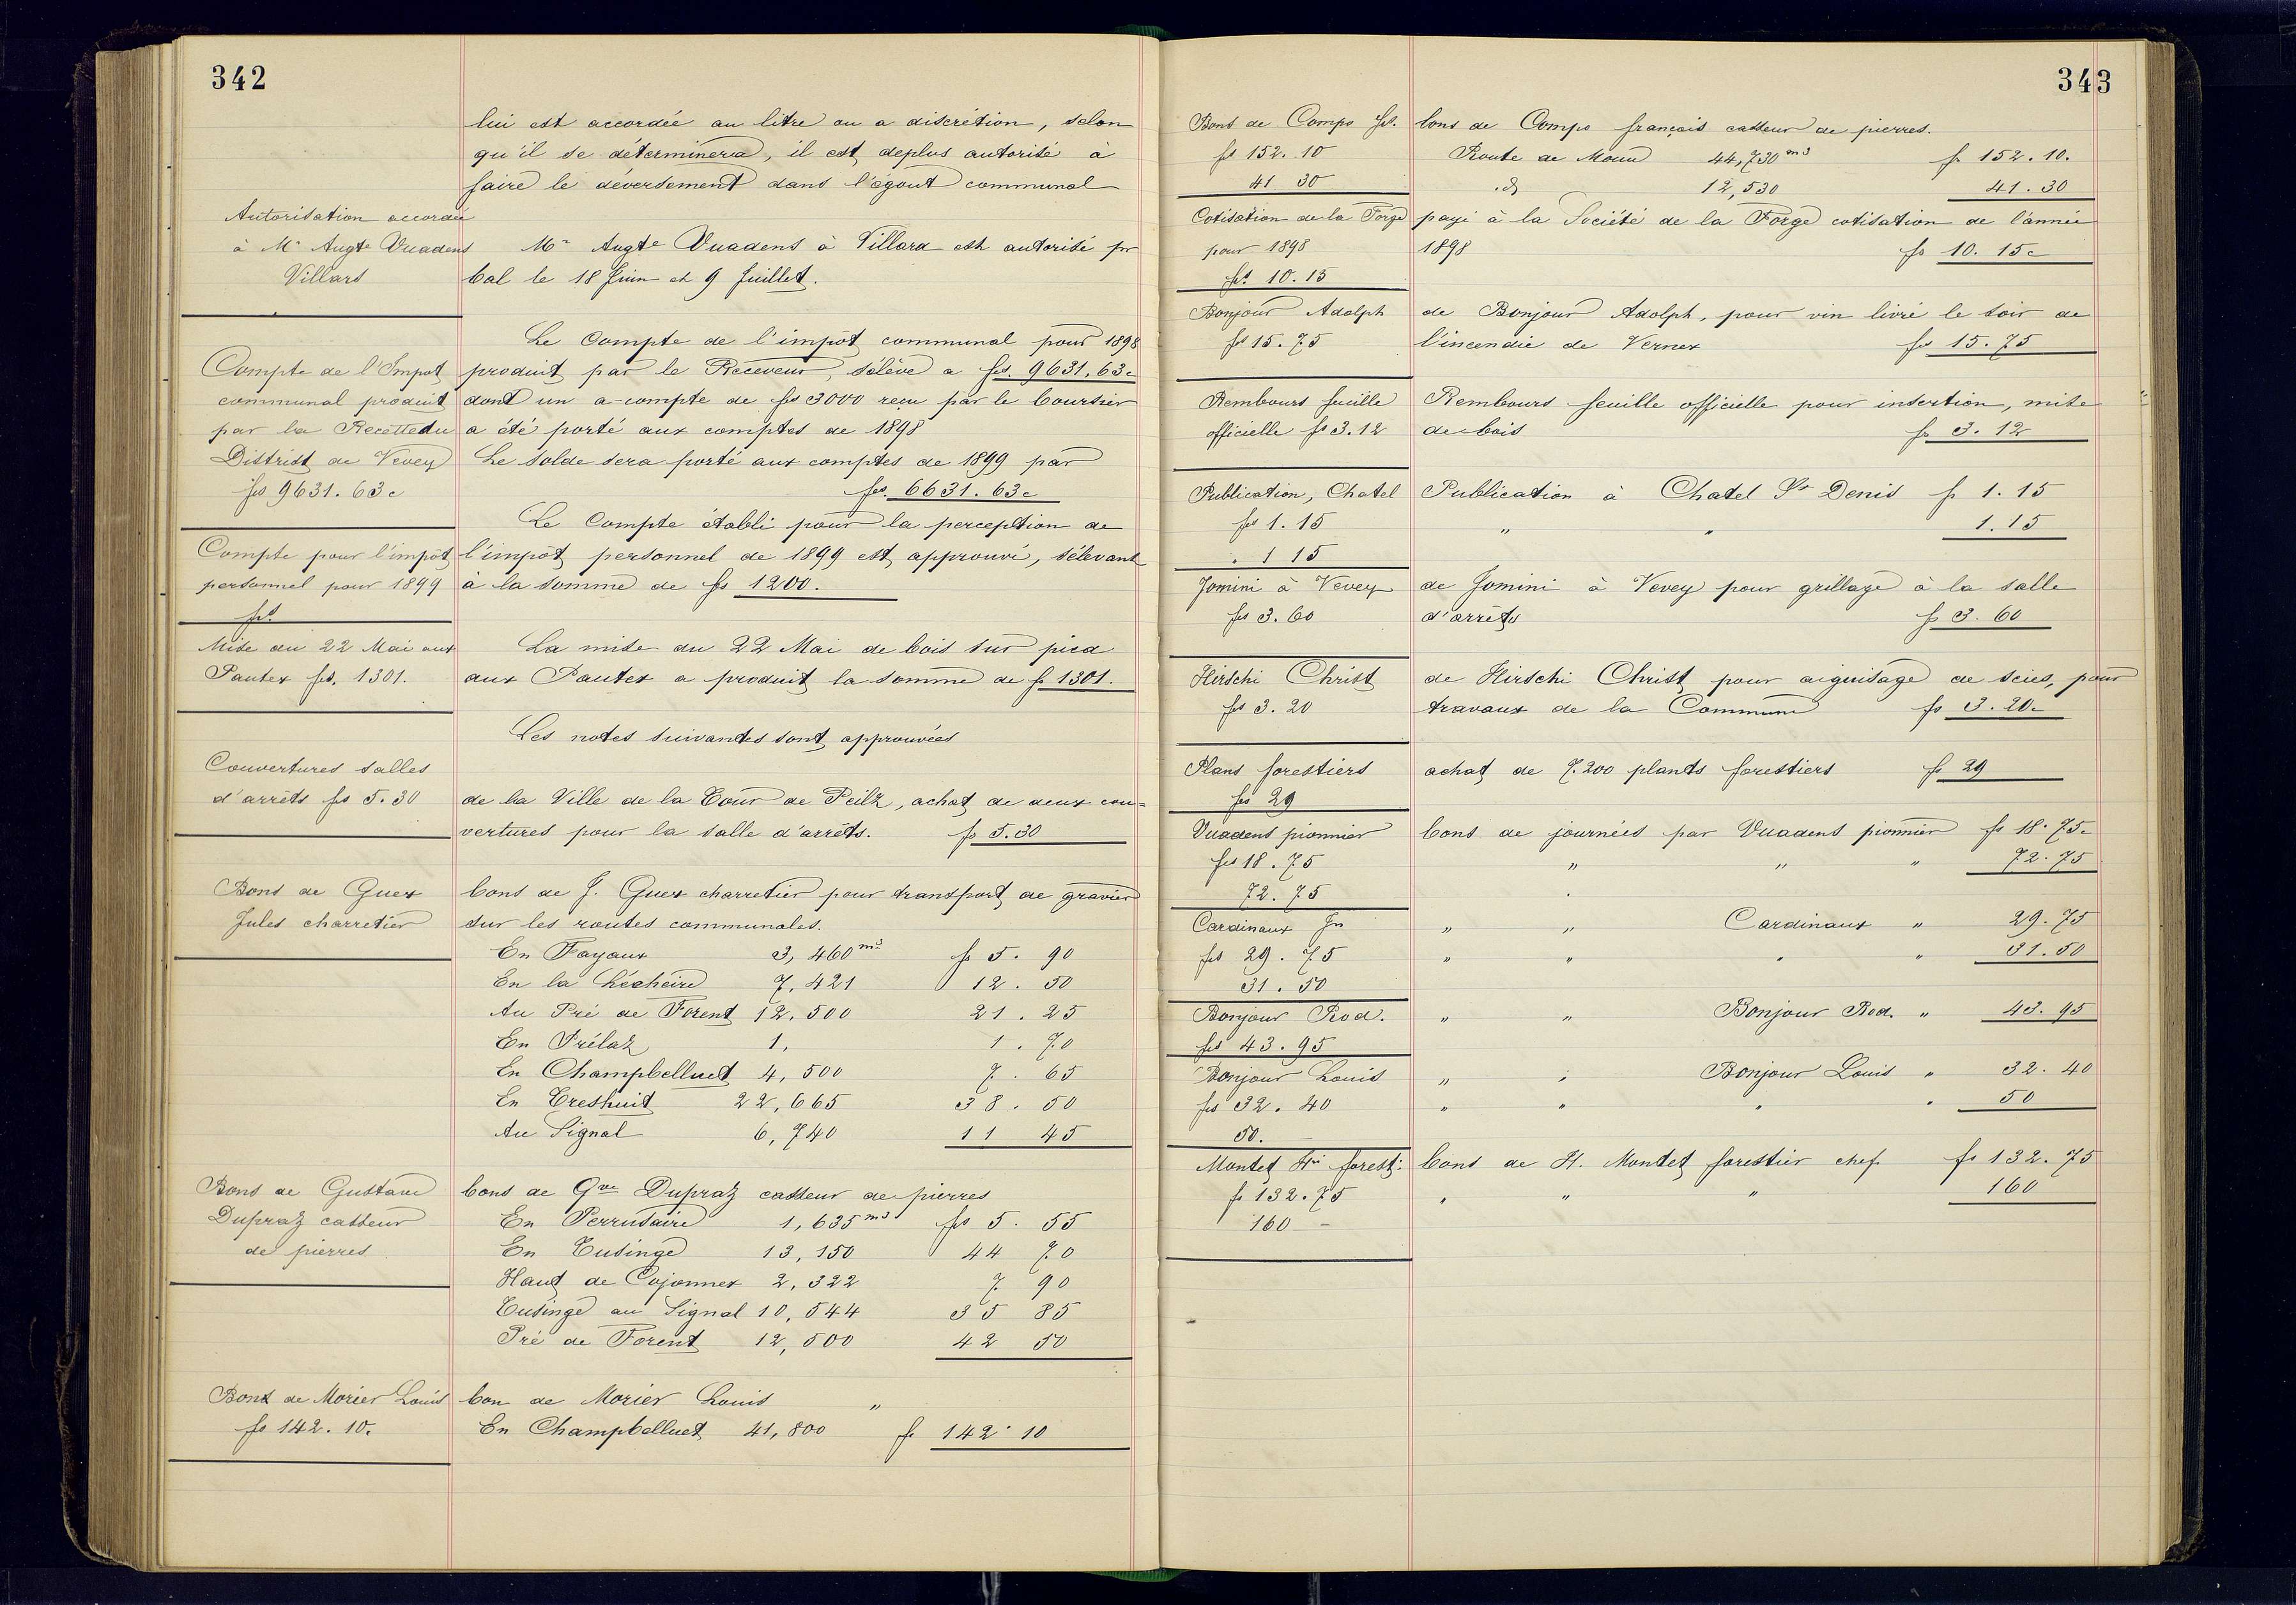 342
lui est accordée au litre ou a discrétion, selon
qu'il se déterminera, il est deplus autorisé à
faire le déversement dans l'égout communal
Autorisation accordée
à Mr Augte Vuadens
Villars
Mr Augte Vuadens à Villard est autorisé pr
bal le 18 Juin et 9 Juillet.
Compte de l'Impot
communal produit
par la Recette du
District de Vevey
frs 9631.63c
Le Compte de l'impôt communal pour 1898
produit par le Receveur, s'élève a frs. 9631,63c
dont un a-compte de frs 3000 reçu par le boursier
a été porté aux comptes de 1898
Le solde sera porté aux comptes de 1899 par
frs. 6631.63c
Compte pour l'impôt
personnel pour 1899
frs
Le Compte établi pour la perception de
l'impôt personnel de 1899 est approuvé, s'élevant
à la somme de frs 1200.
Mise du 22 Mai aux
Pautex frs. 1301.
La mise du 22 Mai de bois sur pied
aux Pautex a produit la somme de fr 1301.
Les notes suivantes sont approuvées
Couvertures salles
d'arrêts frs 5.30
de la Ville de la Tour de Peilz, achat de deux cou=
vertures pour la salle d'arrêts. fr 5.30
Bons de Guex
Jules charretier
bons de J. Guex charretier pour transport de gravier
sur les routes communales.
En Fayaux 3,460 m3 fr 5. 90
En la Léchaire 7,421 12. 50
Au Pré de Forent 12,500 21. 25
En Prélaz 1, 1. 70
En Champbelluet 4,500 7. 65
En Creshuit 22,665 38. 50
Au Signal 6,740 11 45
Bons de Gustave
Dupraz casseur
de pierres
bons de Gve Dupraz casseur de pierres
En Perrusaire 1,635 m3 frs 5. 55
En Cusinge 13,150 44 70
Haut de Cojonnex 2,322 7 90
Cusinge au Signal 10,544 35 85
Pré de Forent 12,500 42 50
Bons de Morier Louis
frs 142.10.
bon de Morier Louis "
En Champbelluet 41,800 fr 142.10
343
Bons de Compo frs.
frs 152.10
41 30
bons de Compo français casseur de pierres.
Route de Moun 44,730 m3 fr 152.10.
id 12,530 41.30
Cotisation de la Forge
pour 1898
frs. 10.15
payé à la Société de la Forge cotisation de l'année
1898 frs 10.15c
Bonjour Adolph
frs 15.75
de Bonjour Adolph, pour vin livré le soir de
l'incendie de Vernex frs 15.75
Rembours feuille
officielle frs 3.12
Rembours feuille officielle pour insertion, mise
de bois fr 3.12
Publication, Chatel
frs 1.15
" 1 15
Publication à Chatel St Denis fr 1.15
" " 1.15
Jomini à Vevey
frs 3.60
de Jomini à Vevey pour grillage à la salle
d'arrêts frs 3.60
Hirschi Christ
frs 3.20
de Hirschi Christ pour aiguisage de scies, pour
travaux de la Commune frs 3.20c
Plans forestiers
frs 29
achat de 7.200 plants forestiers fr 29
Vuadens pionnier
frs 18.75
72.75
bons de journées par Vuadens pionnier frs 18.75c
" " " 72.75
Cardinaux Jn
frs 29.75
31.50
" " Cardinaux " 29.75
" " " " 31.50
Bonjour Rod.
frs 43.95
" " Bonjour Rod. " 43.95
Bonjour Louis
frs 32.40
50.
" " Bonjour Louis " 32.40
" " " " 50
Montet Hri forest:
fr 132.75
160 –
bons de H. Montet forestier chef fr 132.75
" " " 160